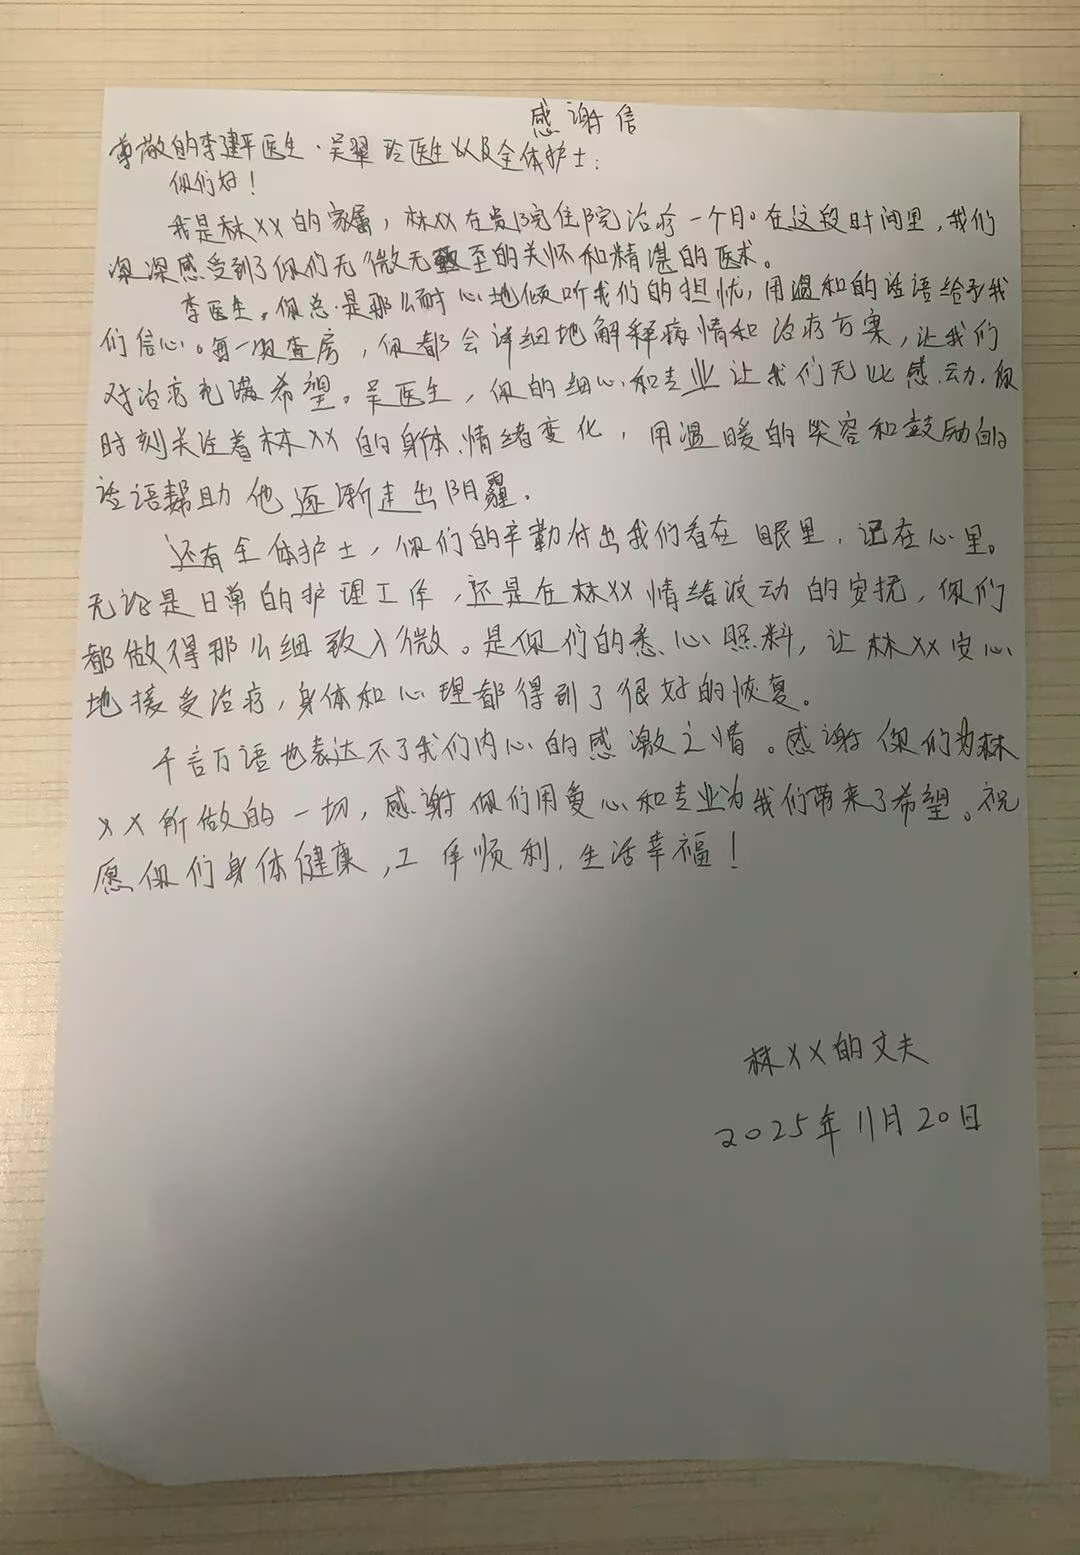 感谢信
尊敬的李建平医生、吴翠玲医生以及全体护士：
你们好！
我是林XX的家属，林XX在贵院住院治疗一个月。在这段时间里，我们
深深感受到了你们无微无至的关怀和精湛的医术。
李医生，你总是那么耐心地倾听我们的担忧，用温和的话语给予我
们信心。每一次查房，你都会详细地解释病情和治疗方案，让我们
对治疗充满希望。吴医生，你的细心和专业让我们无比感动，你
时刻关注着林XX的身体、情绪变化，用温暖的笑容和鼓励的
话语帮助他逐渐走出阴霾。
还有全体护士，你们的辛勤付出我们看在眼里，记在心里。
无论是日常的护理工作，还是在林XX情绪波动的安抚，你们
都做得那么细致入微。是你们的悉心照料，让林XX安心
地接受治疗，身体和心理都得到了很好的恢复。
千言万语也表达不了我们内心的感激之情。感谢你们为林
XX所做的一切，感谢你们用爱心和专业为我们带来了希望。祝
愿你们身体健康，工作顺利，生活幸福！
林XX的丈夫
2025年11月20日